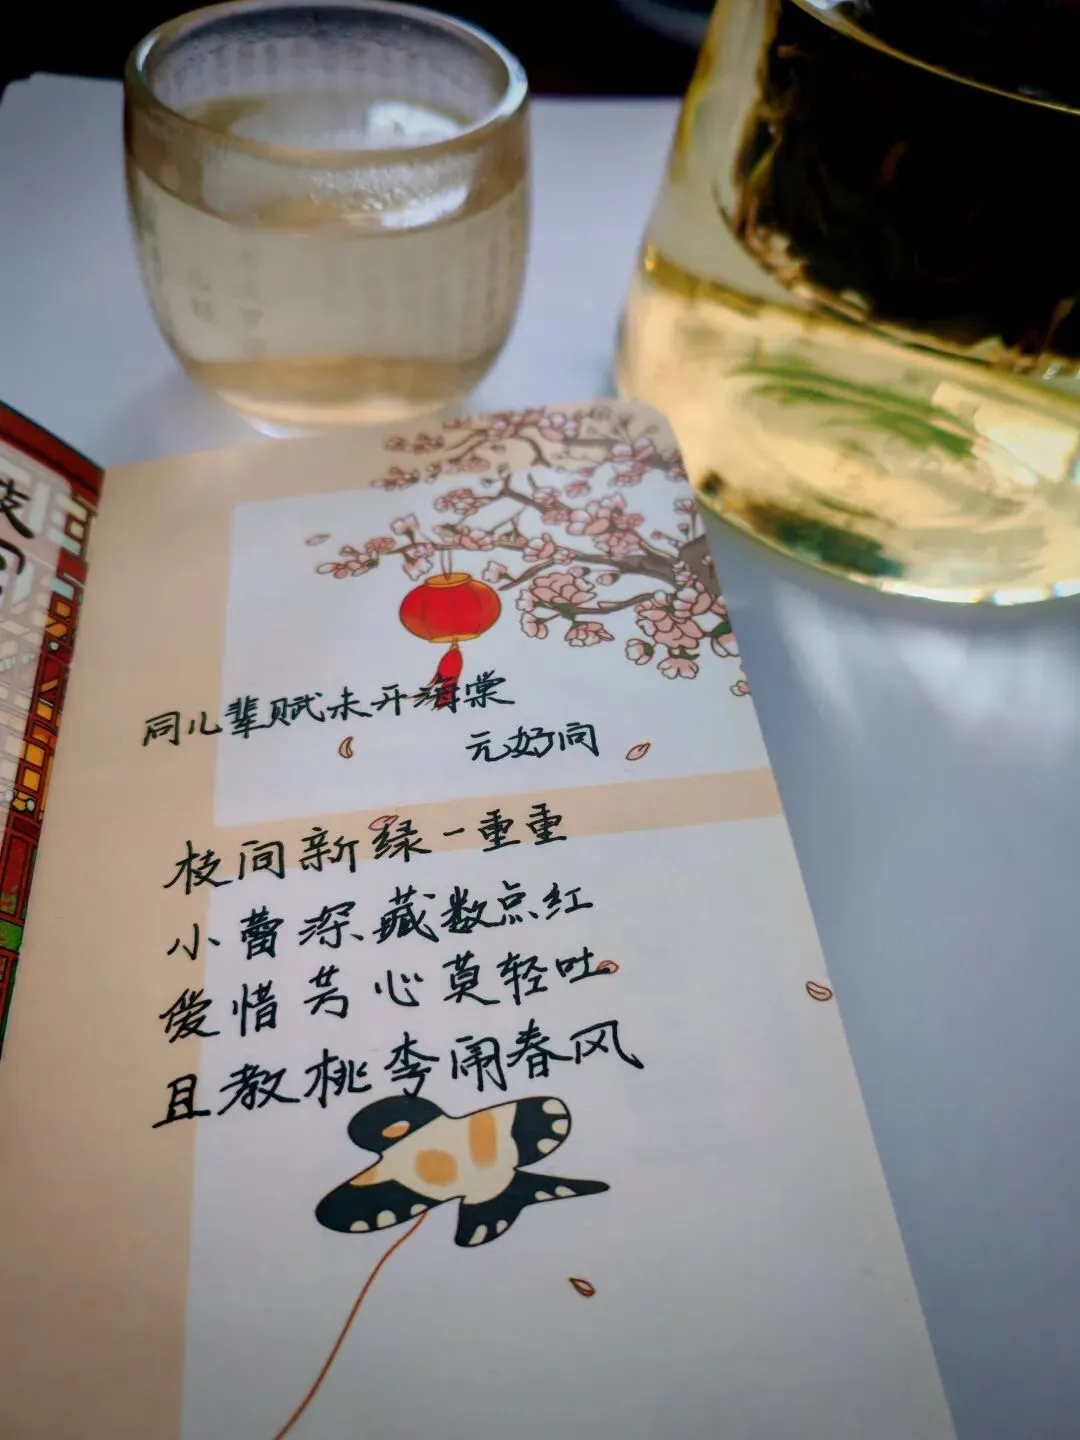 同儿辈赋未开海棠
元好问
枝间新绿一重重
小蕾深藏数点红
爱惜芳心莫轻吐
且教桃李闹春风